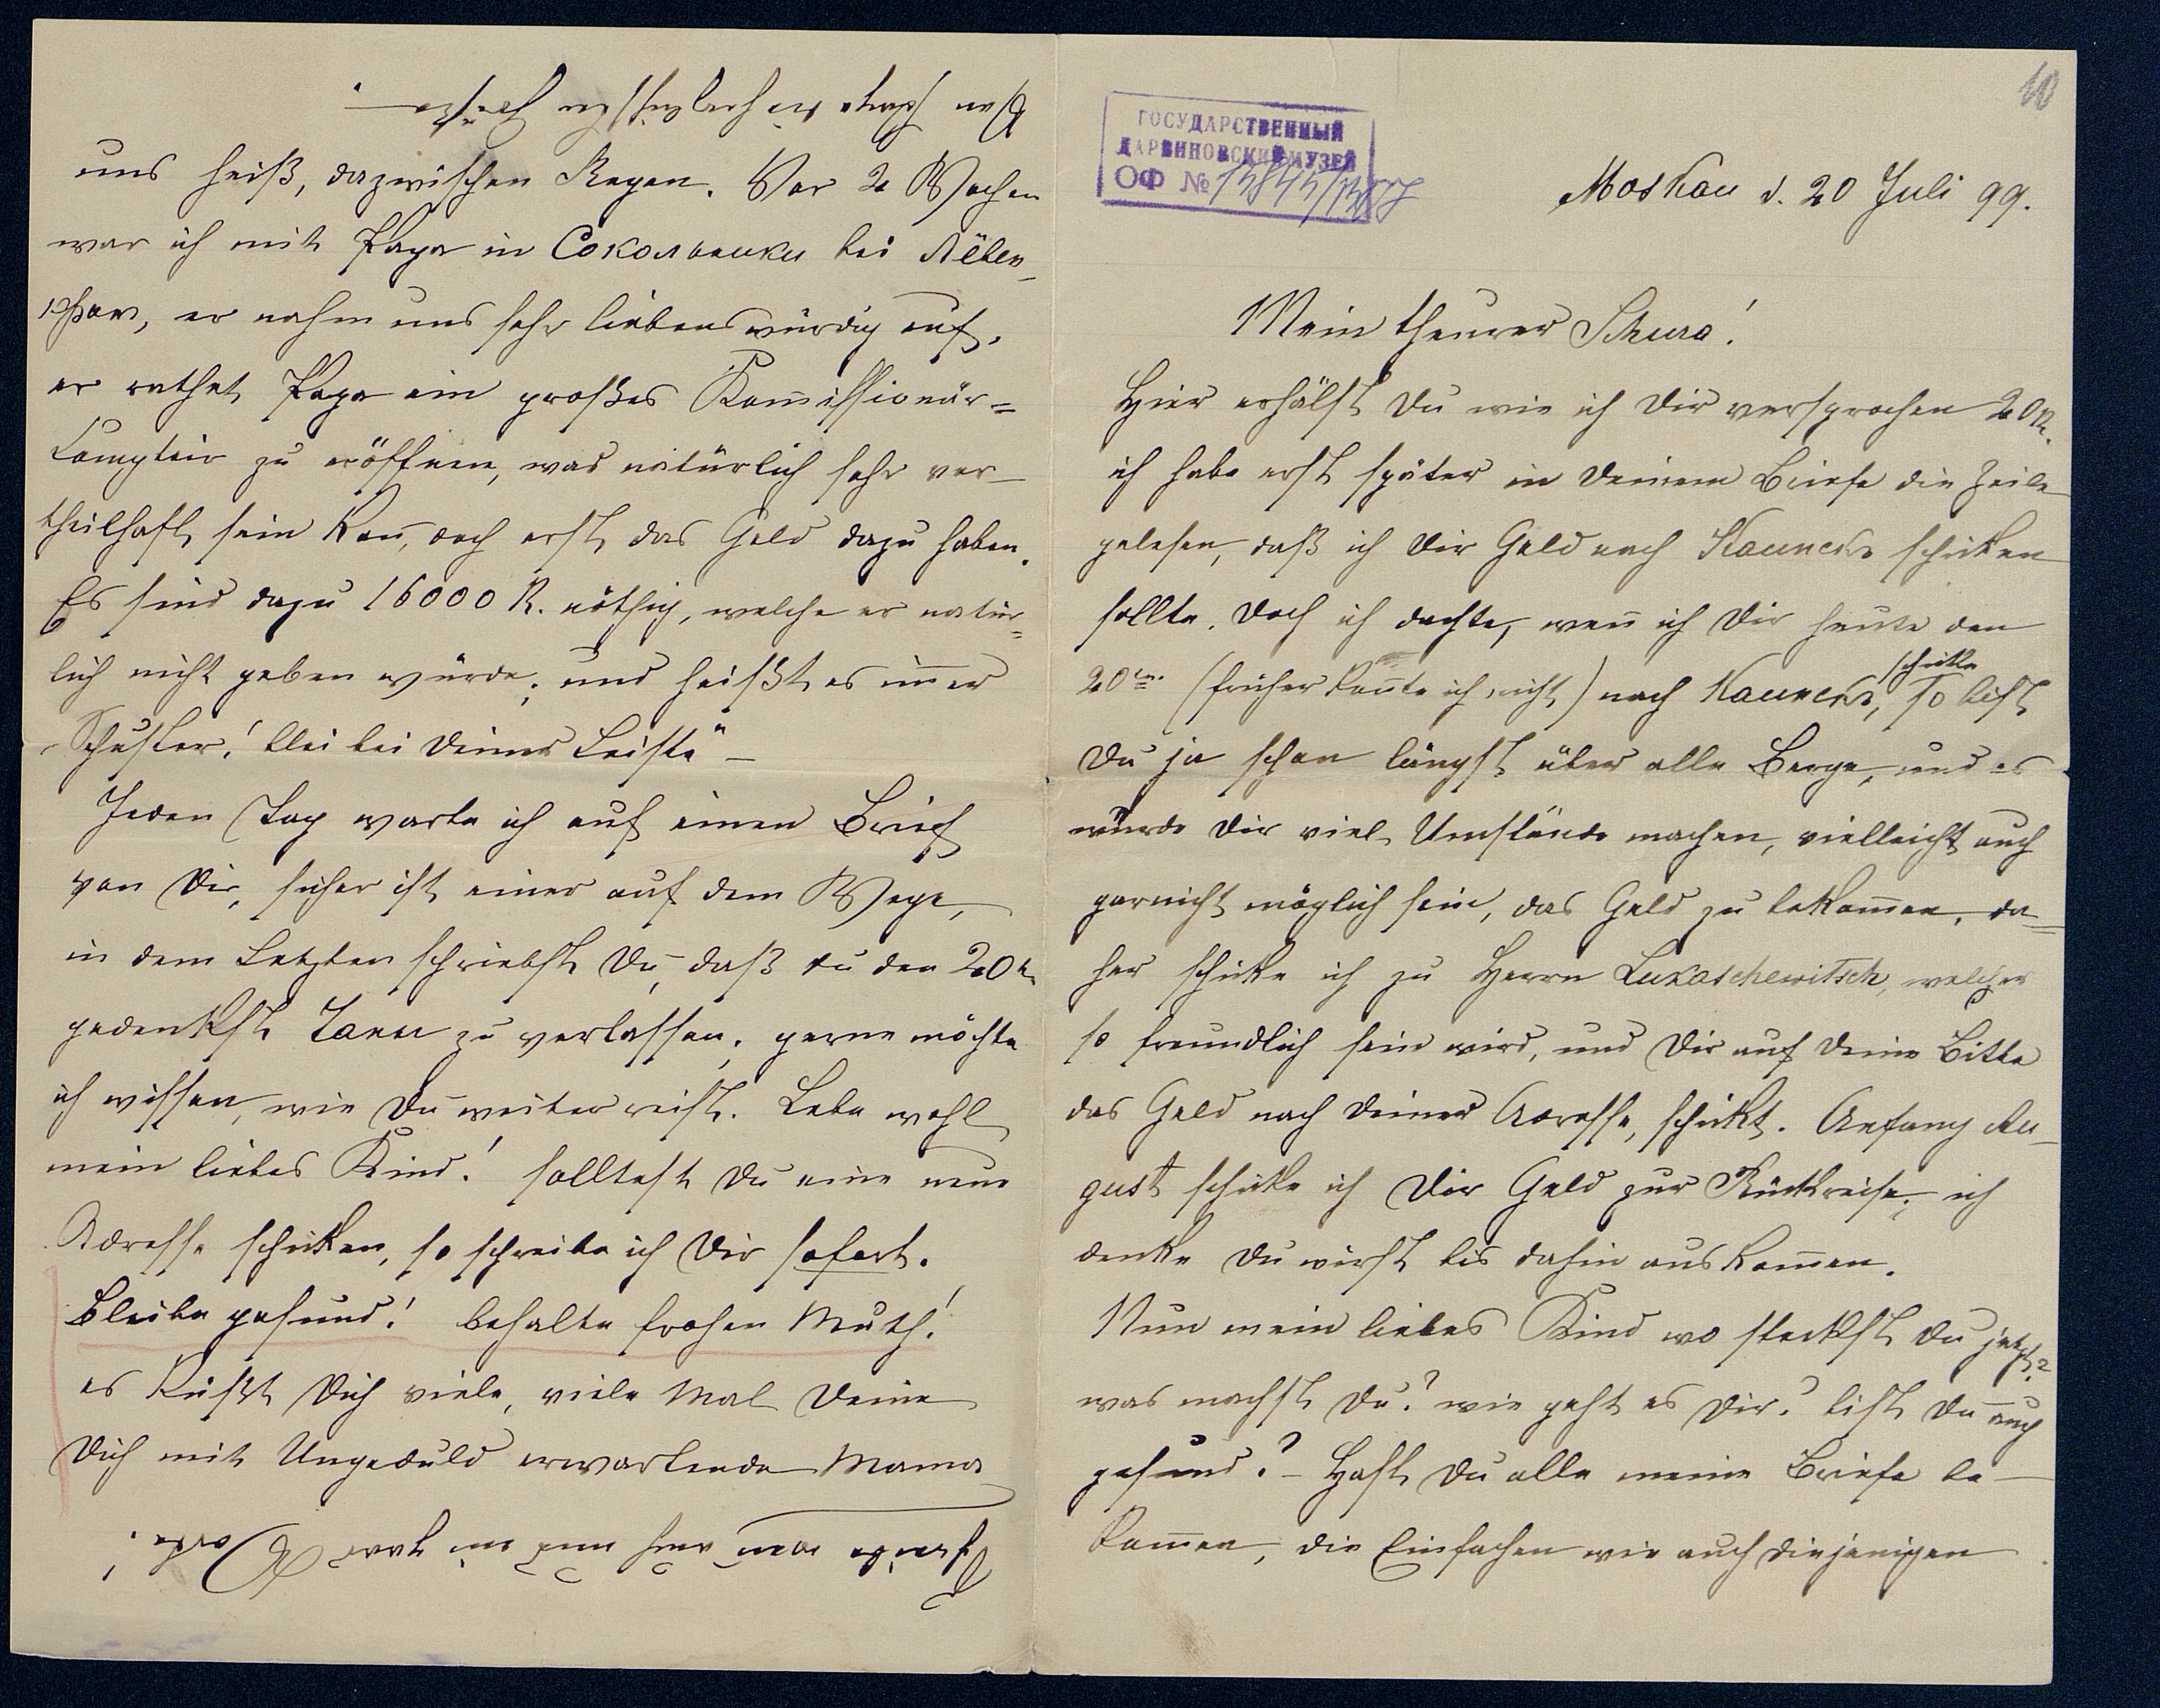 10
ГОСУДАРСТВЕННЫЙ
ДАРВИНОВСКИЙ МУЗЕЙ
ОФ №
Moskau d. 20 Juli 99.
Mein theurer Schura!
Hier erhälst Du wie ich Dir versprochen 20 R.
ich habe erst später in Deinem Briefe die Zeile
gelesen, daß ich Dir Geld nach schicken
sollte. Doch ich dachte, wenn ich Dir heute den
20ten (früher konnte ich nicht) nach schicke, so bist
Du ja schon längst über alle Berge, und es
würde Dir viel Umstände machen, vielleicht auch
garnicht möglich sein, das Geld zu bekommen, da=
her schicke ich zu Herrn Lukaschewitsch, welcher
so freundlich sein wird, und Dir auf Deine Bitte
das Geld nach Deiner Adresse, schickt. Anfang Au-
gust schicke ich Dir Geld zur Rückreise, ich
denke Du wirst bis dahin auskommen.
Nun mein liebes Kind wo steckst Du jetzt?
was machst Du? wie geht es Dir? bist Du auch
gesund? - Hast Du alle meine Briefe be-
kommen, die Einfachen wie auch diejenigen
uns heiß, dazwischen Regen. Vor 2 Wochen
war ich mit Papa in Сокольники bei
er nahm uns sehr liebenswürdig auf,
er rathet Papa ein großes Kommissionär=
Comptoir zu eröffnen, was natürlich sehr vor-
theilhaft sein kann, doch erst das Geld dazu haben.
Es sind dazu 16000 R. nöthig, welche er natür=
lich nicht geben würde; und heißt es immer
„Schuster! blei bei Deiner Leiste" -
Jeden Tag warte ich auf einen Brief
von Dir, sicher ist einer auf dem Wege,
in dem Letzten schriebst Du, daß du den 20t
gedenkst zu verlassen; gerne möchte
ich wissen, wie Du weiter reist. Lebe wohl
mein liebes Kind! solltest Du eine neue
Adresse schicken, so schreibe ich Dir sofort.
Bleibe gesund! behalte frohen Muth!
es küßt Dich viele, viele Mal Deine
Dich mit Ungeduld erwartende Mama